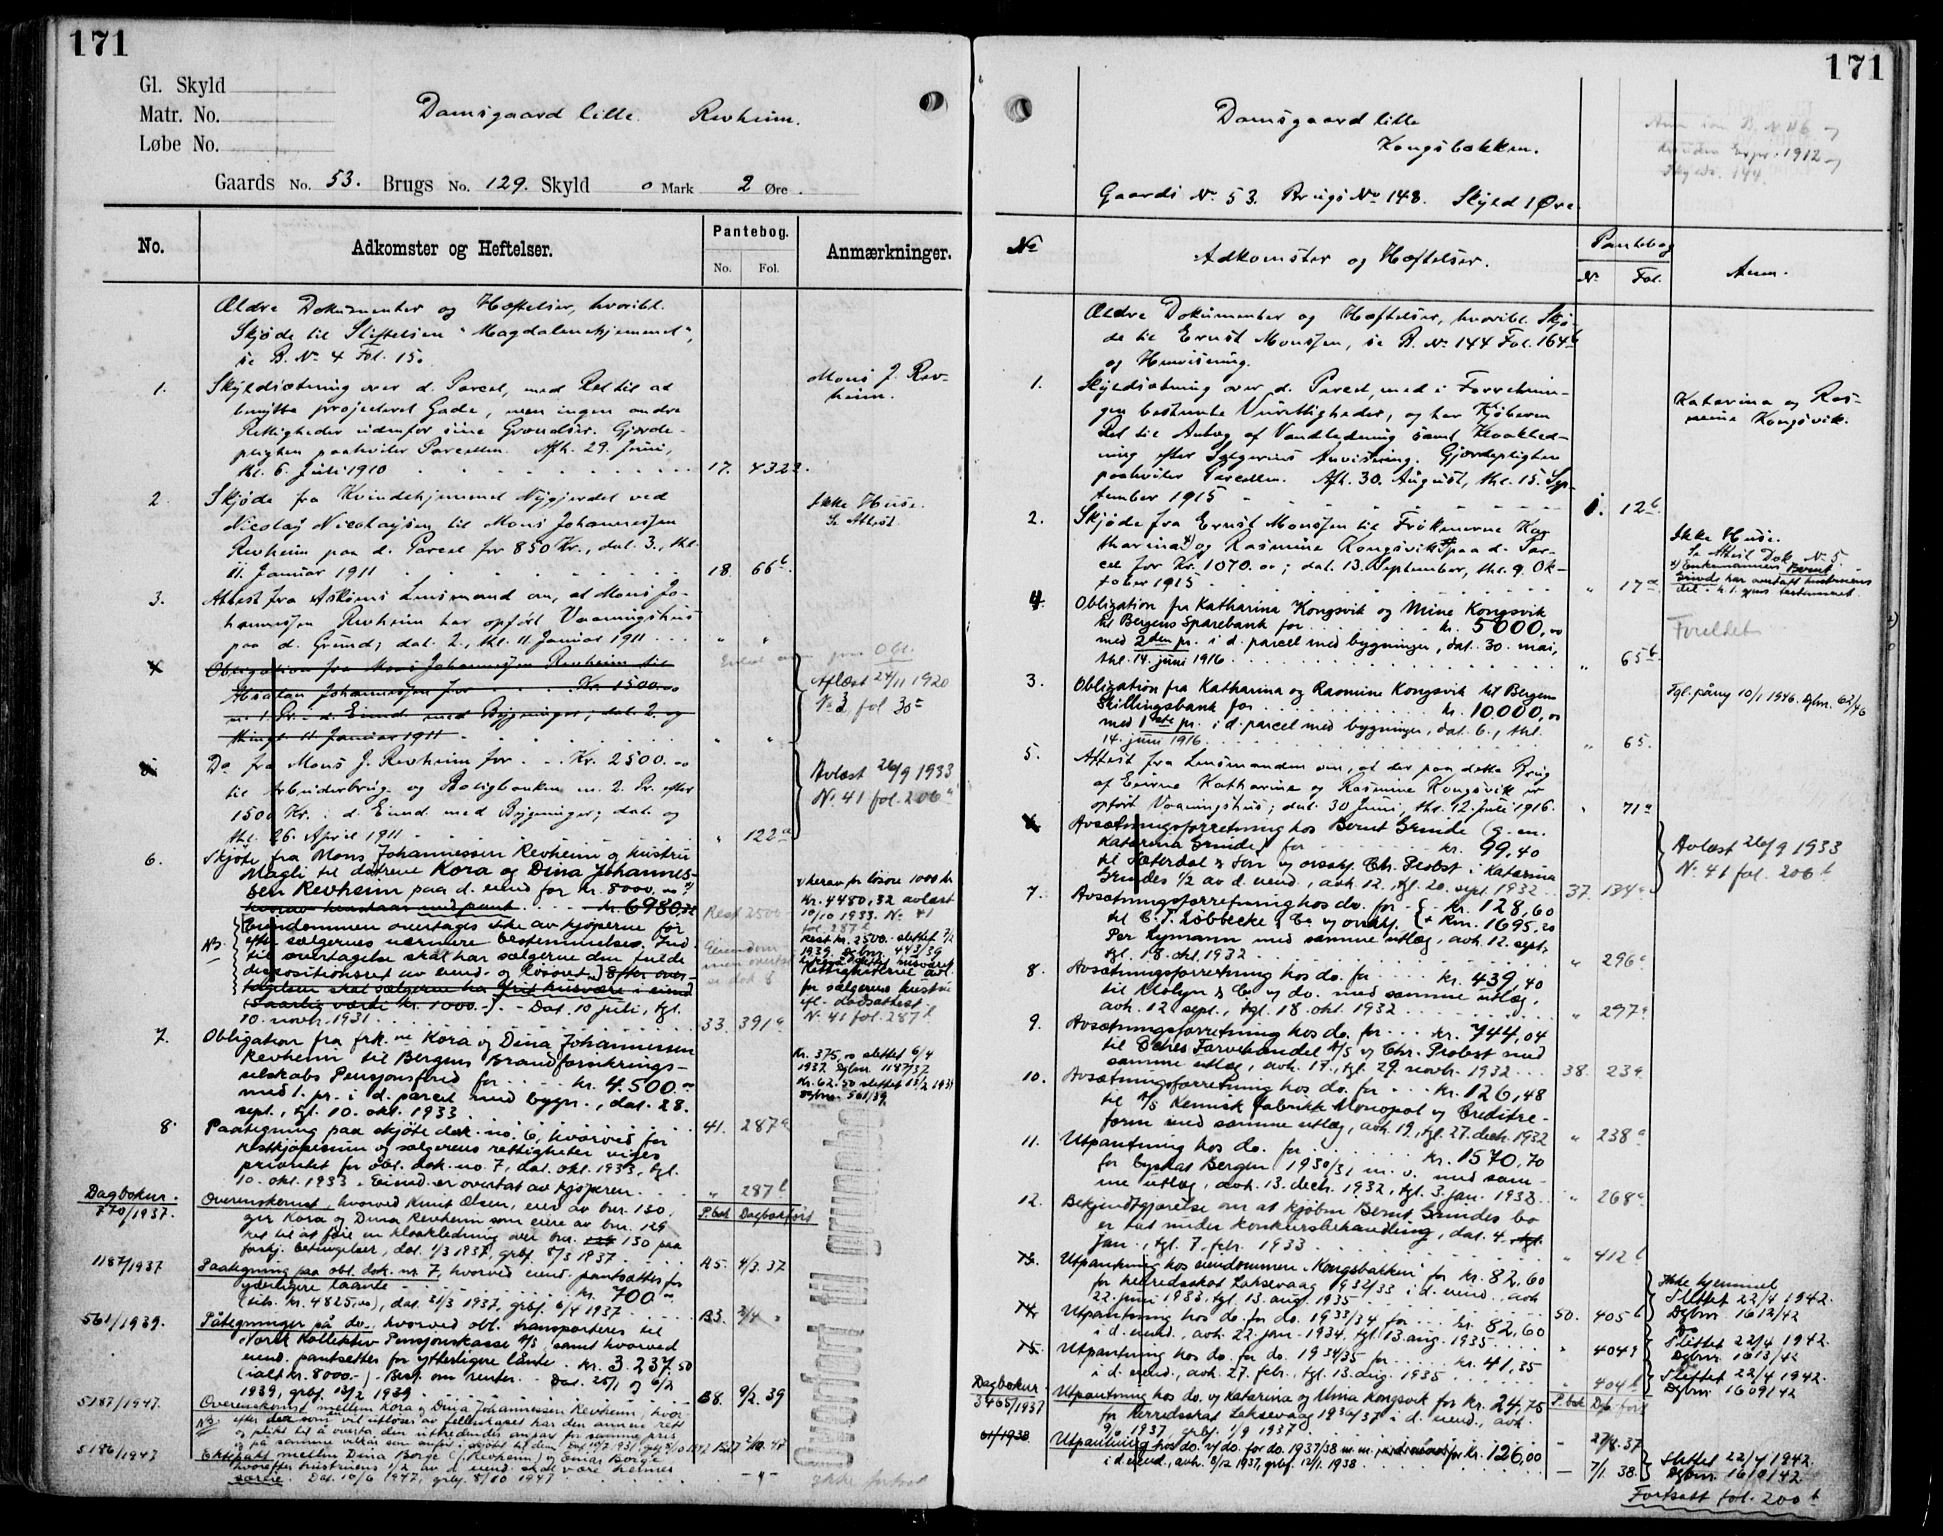 171
Gl. Skyld
Matr. No.
Løbe No.
Damsgaard lille. Revheim.
Gaards No. 53. Brugs No. 129. Skyld 0 Mark 2 Øre.
No. Adkomster og Heftelser. Pantebog. Anmærkninger.
No. Fol.
Ældre Dokumenter og Hæftelser, hvoribl.
Skjøde til Stiftelsen "Magdalenehjemmet",
se B. No 4 Fol. 15.
1. Skyldsætning over d. Parcel, med Ret til at
benytte projecteret Gade, men ingen andre
Rettigheder udenfor sine Grændser. Gjærde-
pligten paahviler Parcellen. Afh. 29. Juni,
thl. 6. Juli 1910 17. 432
Mons J. Rev-
heim.
2. Skjøde fra Kvindehjemmet Nygjerdet ved
Nicolay Nicolaysen til Mons Johannessen
Revheim paa d. Parcel for 850 Kr., dat. 3., thl.
11. Januar 1911 18. 66b
Ikke Huse.
Se Attest
3. Attest fra Askøens Lensmand om, at Mons Jo-
hannessen Revheim har opført Vaaningshus
paa d. Grund; dat. 2., thl. 11 Januar 1911 " "
4. Obligation fra Mons Johannessen Revheim til
Absalon Johannessen for Kr. 1500.00
m. 1 Pr. i d. Eiend. med Bygninger; dat. 2. og
thingl. 11 Januar 1911 " "
Obl.
Aflæst 24/11 1920
No 3 fol 30
5. Do fra Mons J. Revheim for Kr. 2500.00
til Arbeiderbrug- og Boligbanken m. 2. Pr. efter
1500 Kr. i d. Eiend. med Bygninger; dat. og
thl. 26. April 1911 " 122a
Avlæst 26/9 1933
No. 41 fol. 206
6. Skjøte fra Mons Johannessen Revheim og hustru
Magli til døtrene Kora og Dina Johannes-
sen Revheim paa d. eiend for kr. 8000.00
hvorav henstaar med pant kr. 6980,32
Rest 2500
Nb. Eiendommen overtages ikke av kjøperne før
efter sælgernes nærmere bestemmelse. Ind-
til overtagelse skal har sælgerne den fulde
dispositionsret av eiend. og løsøret. Efter over-
tagelsen skal sælgerne ha frit husvære i eiend
(aarlig værdi kr. 1000.-). Dat. 10 juli, tgl.
10. novb. 1931 33. 391a
Eiendom
men overtat
se dok 8
x herav for løsøre 1000 kr
Kr. 4480,32 avlæst
10/10 1933. No. 41
fol. 287b
Rest kr. 2500.- slettet 7/2
1939. Dgbnr. 443/39
Rettighetene avl.
for sælgerens hustru
ifl. dødsattest.
No. 41 fol. 287b
7. Obligation fra frk.ne Kora og Dina Johannessen
Revheim til Bergens Brandforsikrings-
selskabs Pensjonsfond for kr. 4.500.00
med 1. pr. i d. parcel med bygn., dat. 28.
sept., tgl. 10. okt. 1933 41. 287a
Kr. 375,00 slettet 6/4
1937. Dgbnr. 1187/37.
Kr. 62.50 slettet 13/2 1939
Dgbnr. 561/39
8. Paategning paa skjøte dok. no. 6, hvorved for
restkjøpesum og sælgerens rettigheter viges
prioritet for obl. dok. no. 7, dat. okt. 1933, tgl.
10. okt. 1933. Eiend. er overtat av kjøperen. " 287b
Overenskomst, hvorved Knut Olsen, eier av bnr. 130,
gir Kora og Dina Revheim som eiere av bnr. 129
ret til at føre en kloakledning over bnr. 130 paa
forskj. betingelser, dat. 1/3 1937, grbf. 8/3 1937
Dagboknr.
770/1937.
P. bok Dagbokført
1187/1937 Paategning paa obl. dok. nr. 7, hvorved eiend. pantsættes for
yderligere laante kr. 700.00
(tils. kr. 4825,00), dat. 31/3 1937, grbf. 6/4 1937
A5. 4/3. 37
561/1939. Påtegninger på do., hvorved obl. transporteres til
Norsk Kollektiv Pensjonskasse A/S samt hvorved
eiend. pantsettes for ytterligere lånte kr. 3.237.50
(ialt kr. 8000.-). Best. om renter. Dat. 25/1 og 6/2
1939, grbf. 13/2 1939
B3. 3/4
B8. 9/2. 39
5187/1947. Overenskomst mellem Kora og Dina Johannesen Revheim, hvor-
efter den som vil utløses av fellesskapet har den annen rett
og plikt til å overta den uttredendes anpar for samme pris
5186/1947 Ektepakt mellem Dina Borge (f. Revheim) og Einar Borge
hvorefter hustruens 1/2 av d. eiend. skal være hennes
særeie. Dat. 10/6 1947, grbf. 8/10 1947
Overført til grunnbok
171
Damsgaard lille
Kongsbakken.
Gaards No 53. Brugs No 148. Skyld 1 Øre.
No Adkomster og Hæftelser. Pantebog Anm.
No Fol.
Ældre Dokumenter og Hæftelser, hvoribl. Skjø-
de til Ernst Monssen, se B. No 144 Fol. 164b
og Henvisning.
1. Skyldsætning over d. Parcel, med i Forretnin-
gen bestemte Veirettigheder, og har Kjøberen
Ret til Anlæg af Vandledning samt Kloakled-
ning efter Sælgerens Anvisning. Gjærdepligten
paahviler Parcellen. Afh. 30. August, thl. 15. Sep-
tember 1915 1. 12b
Katarina og Ras-
mine Kongsvik.
2. Skjøde fra Ernst Monssen til Frøknerne Ka-
tharina og Rasmine Kongsvik paa d. Par-
cel for Kr. 1070.00; dat. 13. September, thl. 9. Ok-
tober 1915 " 17a
Ikke Huse.
Se Attest Dok. No. 5
x) Enkemannen Bernt
Grinde har overtatt hustruens
del i h. t. gjens. testament.
4. Obligation fra Katharina Kongsvik og Mine Kongsvik
til Bergens Sparebank for kr. 5000,00
med 2den pr. i d. parcel med bygninger, dat. 30. mai,
thl. 14. juni 1916 " 65b
Foreldet
3. Obligation fra Katharina og Rasmine Kongsvik til Bergens
Skillingsbank for kr. 10000,00
med 1ste pr. i d. parcel med bygninger, dat. 6., thl.
14. juni 1916 " 65.
Tgl. påny 10/1 1946. Dgbnr. 62/46
5. Attest fra Lensmanden om, at der paa dette Brug
af Eierne Katharina og Rasmine Kongsvik er
opført Vaaningshus; dat. 30 Juni, thl. 12. Juli 1916. " 71a
6. Avsætningsforretning hos Bernt Grinde (g. m.
Katarina Grinde) for kr. 99,40
til Sæterdal & Søn og orsakf. Chr. Probst i Katarina
Grindes 1/2 av d. eiend., avh. 12., tgl. 20. sept. 1932 37. 134a
Avlæst 26/9 1933
No. 41 fol. 206b
7. Avsætningsforretning hos do. for kr. 128,60
til C. F. Löbbecke & Co og orakf. + Rm. 1695,20
Per Lymann med samme utlæg, avh. 12. sept.,
tgl. 18. okt. 1932 " 296a
8. Avsætningsforretning hos do. for kr. 439,40
til Kloløyn & Co og do. med samme utlæg,
avh. 12 sept., tgl. 18. okt. 1932 " 297a
9. Avsætningsforretning hos do. for kr. 744,04
til Behres Farvehandel A/S og Chr. Probst med
samme utlæg, avh. 17., tgl. 29. novb. 1932 38. 23a
10. Avsætningsforretning hos do. for kr. 126,48
til A/S Kemisk fabrikk Monopol og Creditre-
form med samme utlæg, avh. 19., tgl. 27. decb. 1932 " 238a
11. Utpantning hos do. for kr. 1570,70
for byskat Bergen 1930/31 m. v. med sam-
me utlæg, avh. 13. decb. 1932, tgl. 3. jan. 1933 " 268a
12. Bekjendtgjørelse om at kjøbm. Bernt Grindes bo
er tat under konkursbehandling, dat. 4.
jan., tgl. 7. febr. 1933 " 412b
13. Utpantning hos eiendommen "Kongsbakken" for kr. 82,60
for herredsskat Laksevaag 1932/33 i d. eiend., avh.
22. juni 1933, tgl. 13. aug. 1935 50. 405b
Ikke hjemmel
Slettet 22/4 1942.
Dgbnr. 1612/42
14. Utpantning hos do. for do. 1933/34 for kr. 82,60
i d. eiend., avh. 22. jan. 1934, tgl. 13. aug. 1935 " 404a
Do
Slettet 22/4 1942.
Dgbnr. 1613/42
15. Utpantning hos do. for do. 1934/35 for kr. 41,35
i d. eiend., avh. 27. febr., tgl. 13. aug. 1935 " 404b
Slettet 22/4 1942.
Dgbnr. 1609/42
Dagboknr.
3465/1937 Utpantning hos do. og Katarina og Mina Kongsvik for kr. 24,75
for herredsskat Laksevaag 1936/37 i d. eiend., avh.
9/6 1937, grbf. 1/9 1937 — 27/8.37
P. bok Dgb. ført
61/1938 Utpantning hos do. og do. for do. 1937/38 m. m. for kr. 126,00
i d. eiend., avh. 8/12 1937, grbf. 12/1. 1938 — 7/1. 38.
Slettet 22/4 1942.
Fortsatt fol. 200b